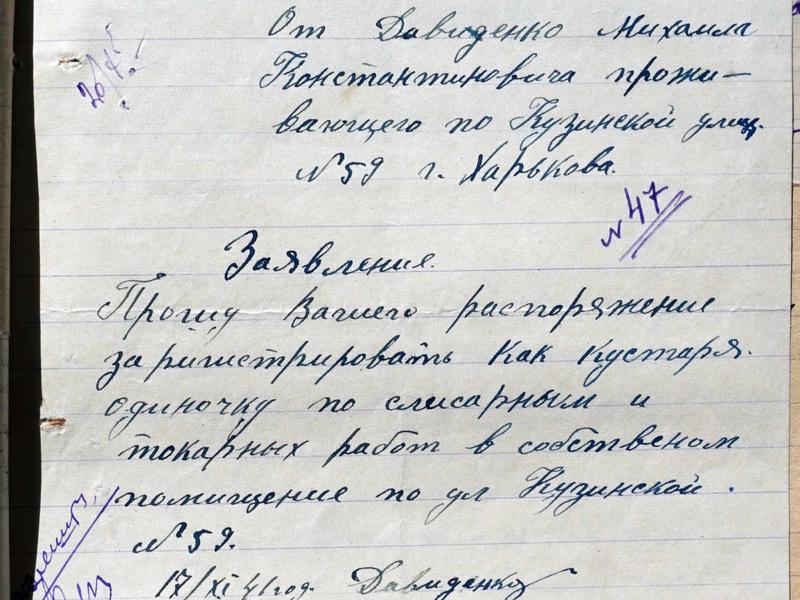 От Давиденко Михаила
Константиновича прожи-
вающего по Кузинской улиц.
№59 г. Харькова.
№47
Заявление.
Прошу Вашего распоряжение
заригистрировать как кустаря.
одиночку по слисарным и
токарных работ в собственом
помищение по ул Кузинской.
№59.
17/XI 41 год. Давиденко